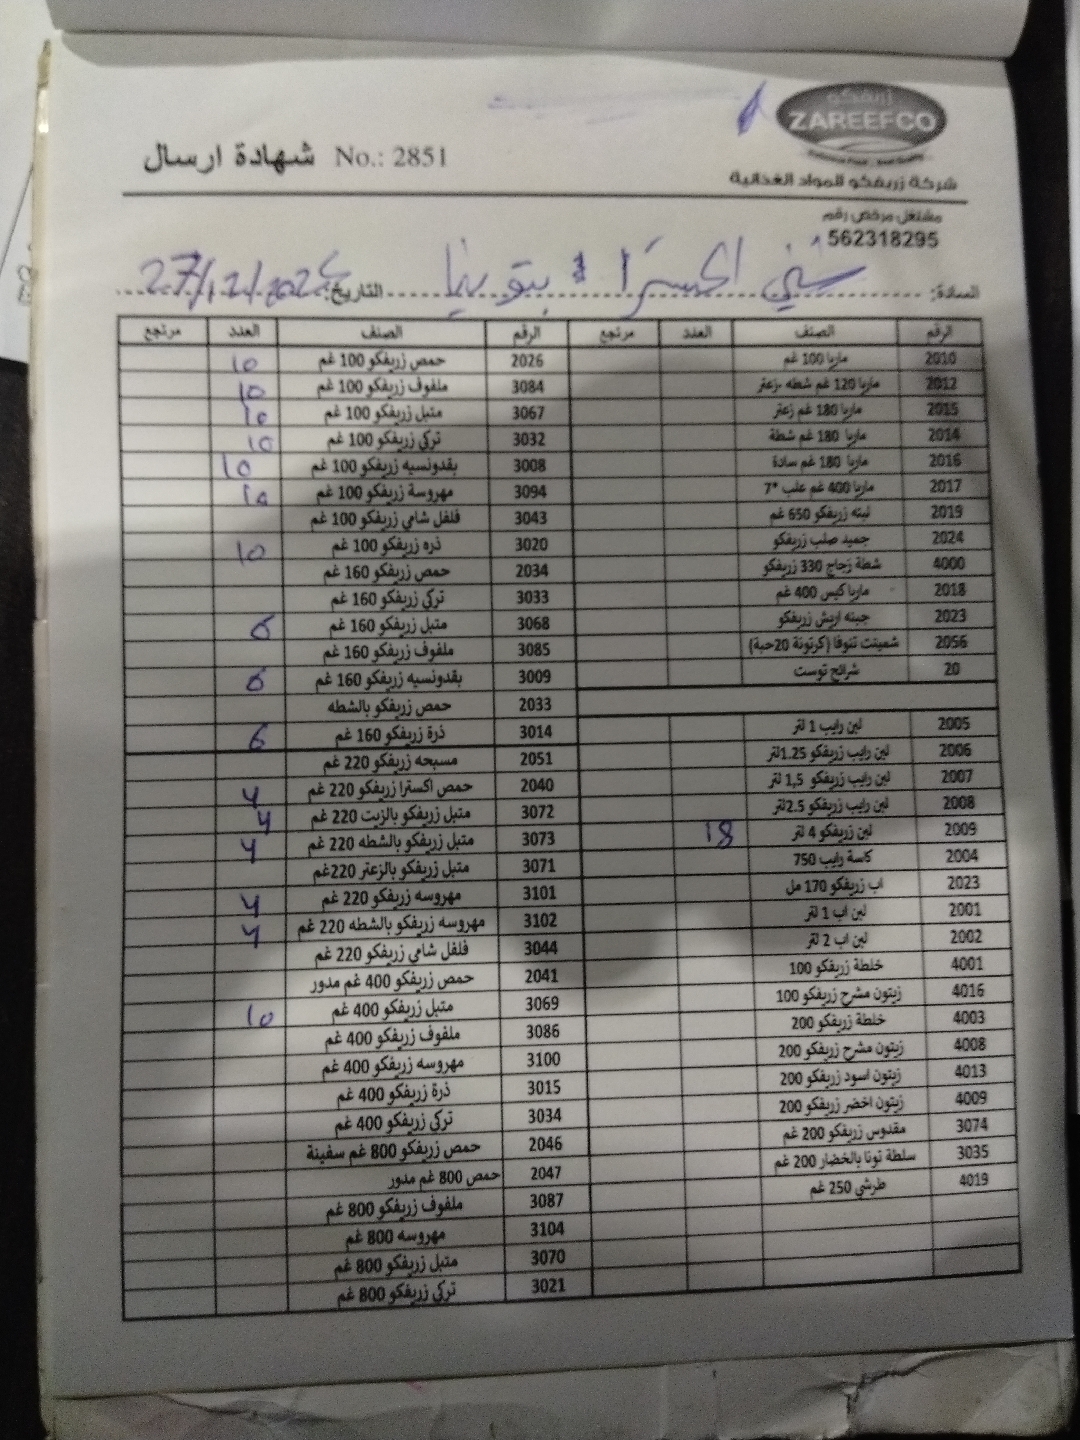 زريفكو
ZAREEFCO
شهادة ارسال No.: 2851
شركة زريفكو للمواد الغذائية
مشتغل مرخص رقم
562318295
السادة: اكسترا التاريخ: 27/12/2024
الرقم الصنف العدد مرتجع الرقم الصنف العدد مرتجع
2010 ماربا 100 غم 2026 حمص زريفكو 100 غم 10
2012 ماربا 120 غم شطه -زعتر 3084 ملفوف زريفكو 100 غم 10
2015 ماربا 180 غم زعتر 3067 متبل زريفكو 100 غم 10
2014 ماربا 180 غم شطة 3032 تركي زريفكو 100 غم 10
2016 ماربا 180 غم سادة 3008 بقدونسيه زريفكو 100 غم 10
2017 ماربا 400 غم علب *7 3094 مهروسة زريفكو 100 غم 10
2019 لبنه زريفكو 650 غم 3043 فلفل شامي زريفكو 100 غم
2024 جميد صلب زريفكو 3020 ذره زريفكو 100 غم 10
4000 شطة زجاج 330 زريفكو 2034 حمص زريفكو 160 غم
2018 ماربا كيس 400 غم 3033 تركي زريفكو 160 غم
2023 جبنه اريش زريفكو 3068 متبل زريفكو 160 غم 6
2056 شمينت تنوفا (كرتونة 20حبة) 3085 ملفوف زريفكو 160 غم
20 شرائح توست 3009 بقدونسيه زريفكو 160 غم 6
2033 حمص زريفكو بالشطه
2005 لبن رايب 1 لتر 3014 ذرة زريفكو 160 غم 6
2006 لبن رايب زريفكو 1.25لتر 2051 مسبحه زريفكو 220 غم
2007 لبن رايب زريفكو 1,5 لتر 2040 حمص اكسترا زريفكو 220 غم 4
2008 لبن رايب زريفكو 2.5لتر 3072 متبل زريفكو بالزيت 220 غم 4
2009 لبن زريفكو 4 لتر 18 3073 متبل زريفكو بالشطه 220 غم 4
2004 كاسة رايب 750 3071 متبل زريفكو بالزعتر 220غم
2023 اب زريفكو 170 مل 3101 مهروسه زريفكو 220 غم 4
2001 لبن اب 1 لتر 3102 مهروسه زريفكو بالشطه 220 غم 4
2002 لبن اب 2 لتر 3044 فلفل شامي زريفكو 220 غم
4001 خلطة زريفكو 100 2041 حمص زريفكو 400 غم مدور
4016 زيتون مشرح زريفكو 100 3069 متبل زريفكو 400 غم 10
4003 خلطة زريفكو 200 3086 ملفوف زريفكو 400 غم
4008 زيتون مشرح زريفكو 200 3100 مهروسه زريفكو 400 غم
4013 زيتون اسود زريفكو 200 3015 ذرة زريفكو 400 غم
4009 زيتون اخضر زريفكو 200 3034 تركي زريفكو 400 غم
3074 مقدوس زريفكو 200 غم 2046 حمص زريفكو 800 غم سفينة
3035 سلطة تونا بالخضار 200 غم 2047 حمص 800 غم مدور
4019 طرشي 250 غم 3087 ملفوف زريفكو 800 غم
3104 مهروسه 800 غم
3070 متبل زريفكو 800 غم
3021 تركي زريفكو 800 غم